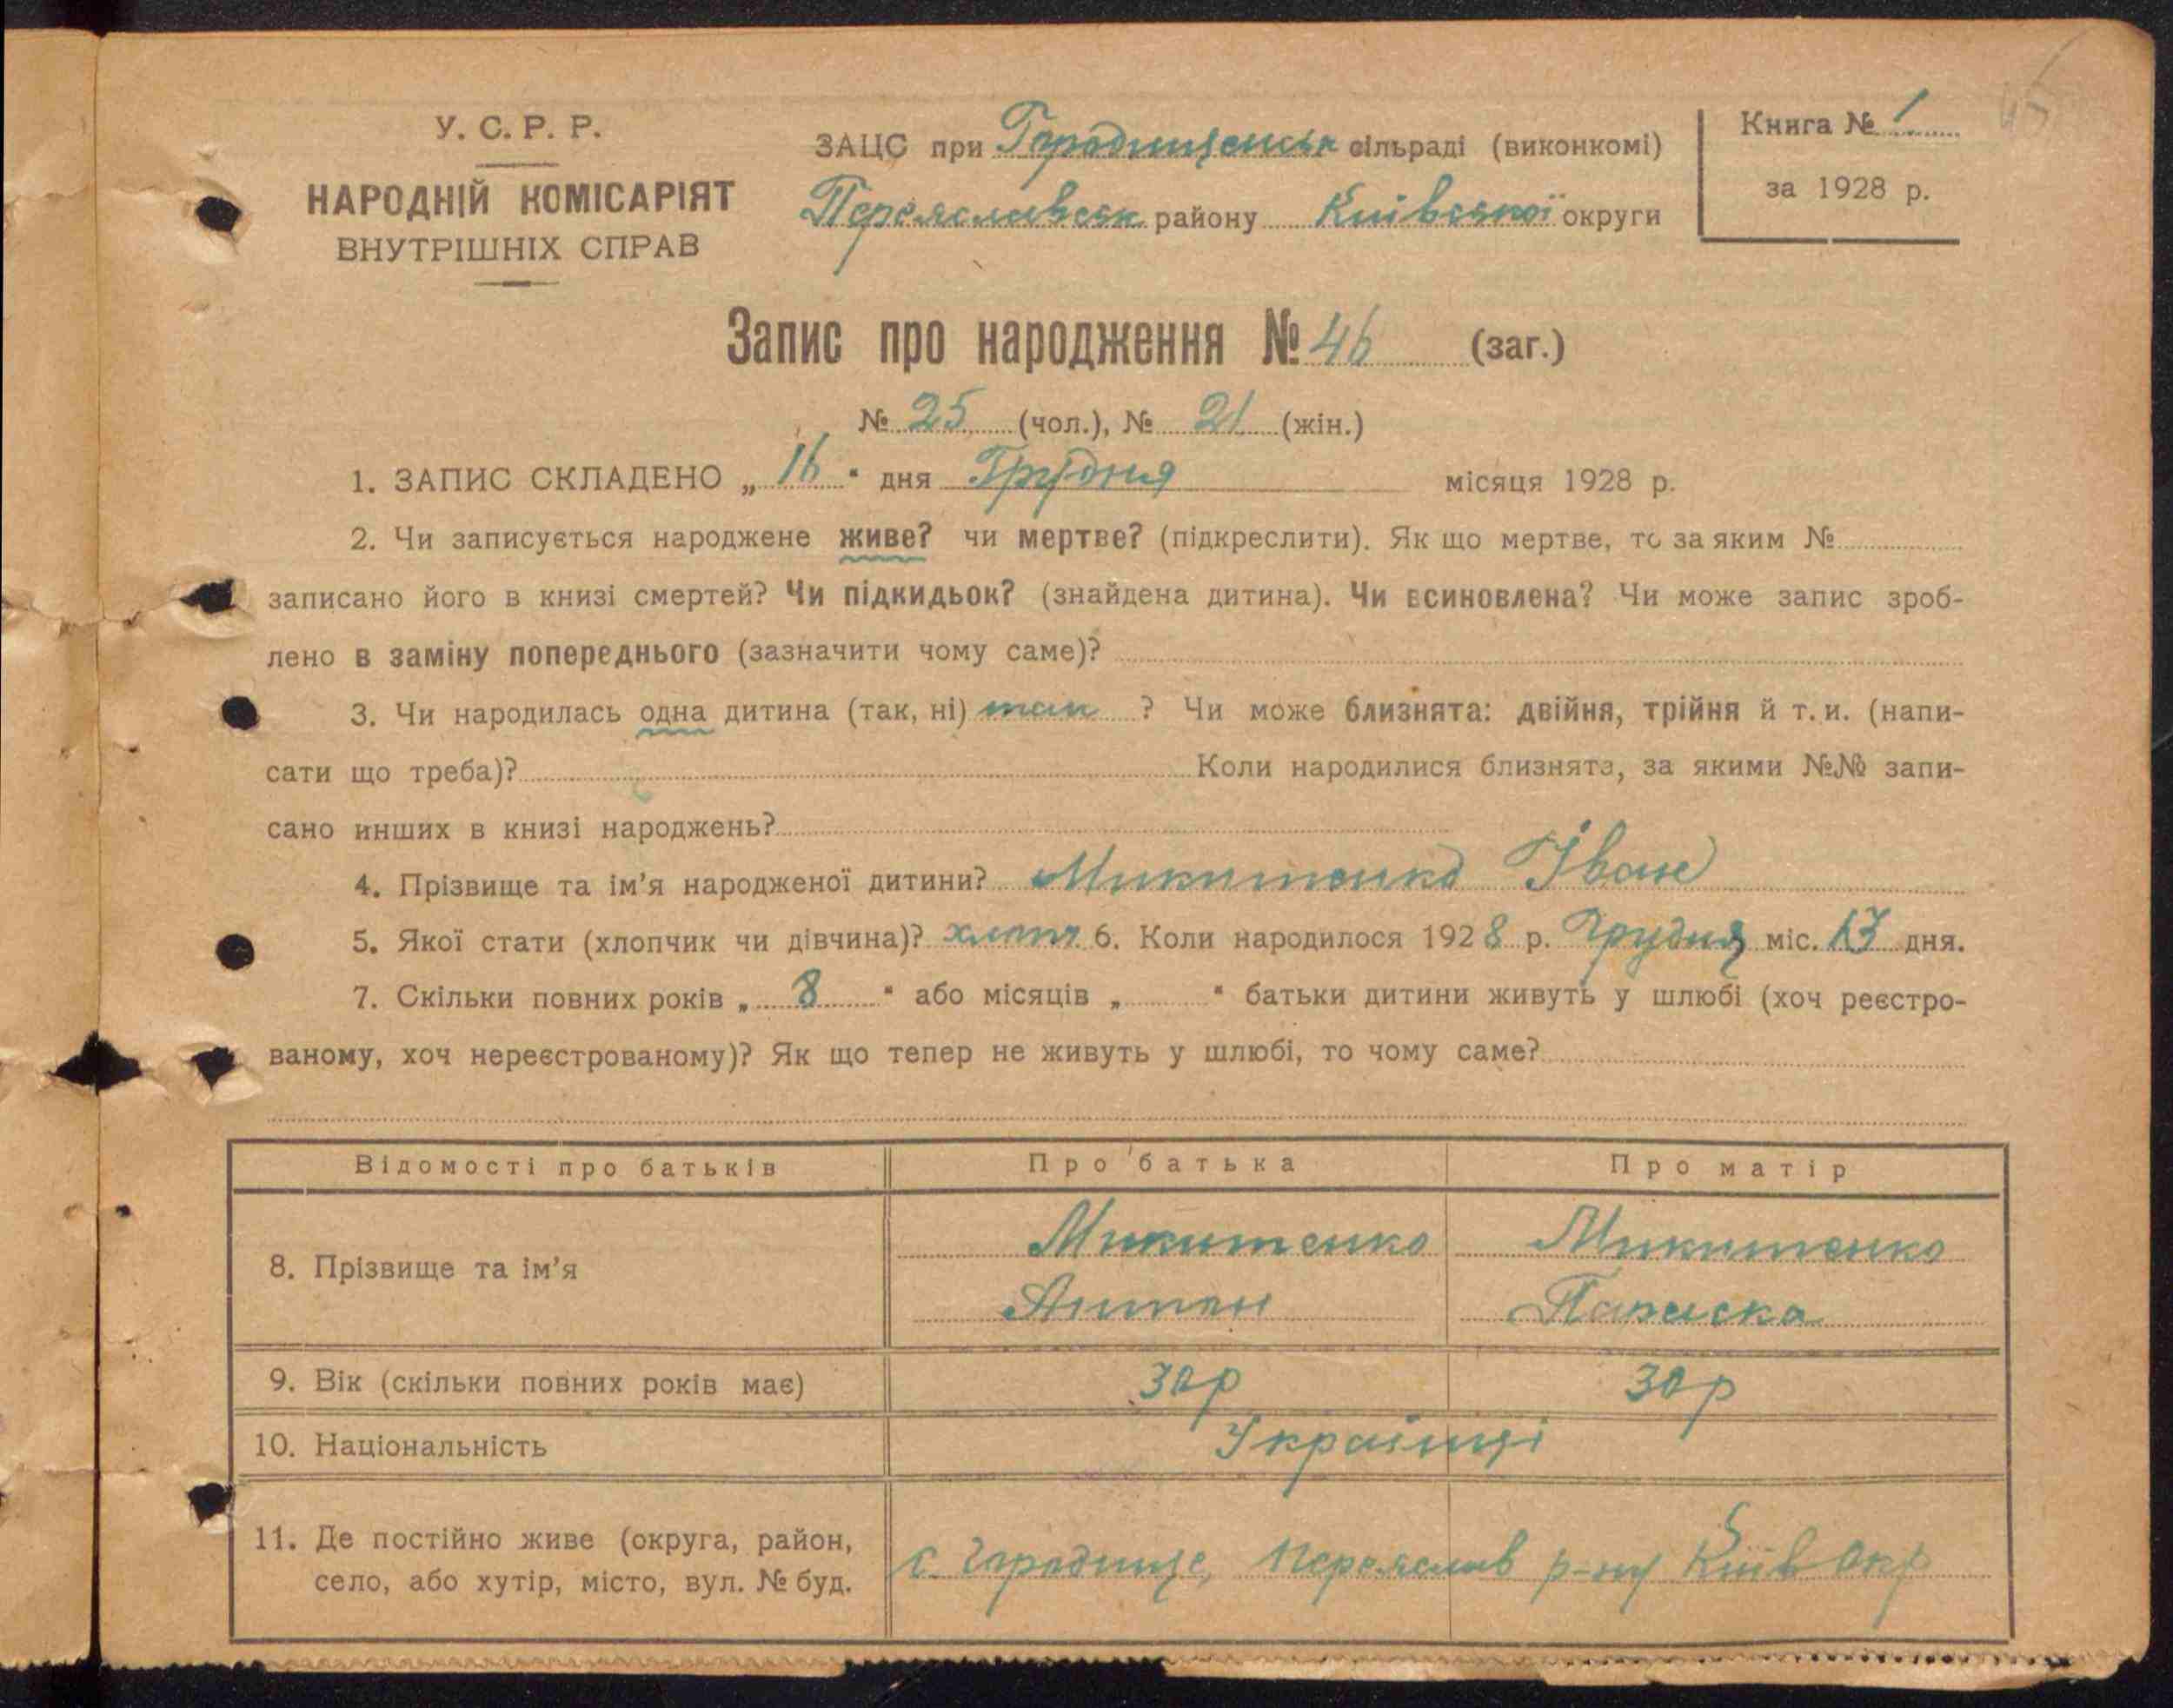 У. С. Р. Р.
НАРОДНІЙ КОМІСАРІЯТ
ВНУТРІШНІХ СПРАВ
ЗАЦС при Городищенськ сільраді (виконкомі)
Переяславськ району Київської округи
Книга № 1
за 1928 р.
45
Запис про народження № 46 (заг.)
№ 25 (чол.), № 21 (жін.)
1. ЗАПИС СКЛАДЕНО „ 16 “ дня Грудня місяця 1928 р.
2. Чи записується народжене живе? чи мертве? (підкреслити). Як що мертве, то за яким №
записано його в книзі смертей? Чи підкидьок? (знайдена дитина). Чи всиновлена? Чи може запис зроб-
лено в заміну попереднього (зазначити чому саме)?
3. Чи народилась одна дитина (так, ні) так ? Чи може близнята: двійня, трійня й т. и. (напи-
сати що треба)? Коли народилися близнята, за якими №№ запи-
сано инших в книзі народжень?
4. Прізвище та ім’я народженої дитини? Микитенко Іван
5. Якої стати (хлопчик чи дівчина)? хлопч 6. Коли народилося 1928 р. Грудня міс. 13 дня.
7. Скільки повних років „ 8 “ або місяців „ “ батьки дитини живуть у шлюбі (хоч реєстро-
ваному, хоч нереєстрованому)? Як що тепер не живуть у шлюбі, то чому саме?
Відомості про батьків Про батька Про матір
8. Прізвище та ім’я Микитенко Микитенко
Антон Параска
9. Вік (скільки повних років має) 30р 30р
10. Національність Українці
11. Де постійно живе (округа, район,
село, або хутір, місто, вул. № буд.
с. Городище, Переяслав р-ну Київ Окр